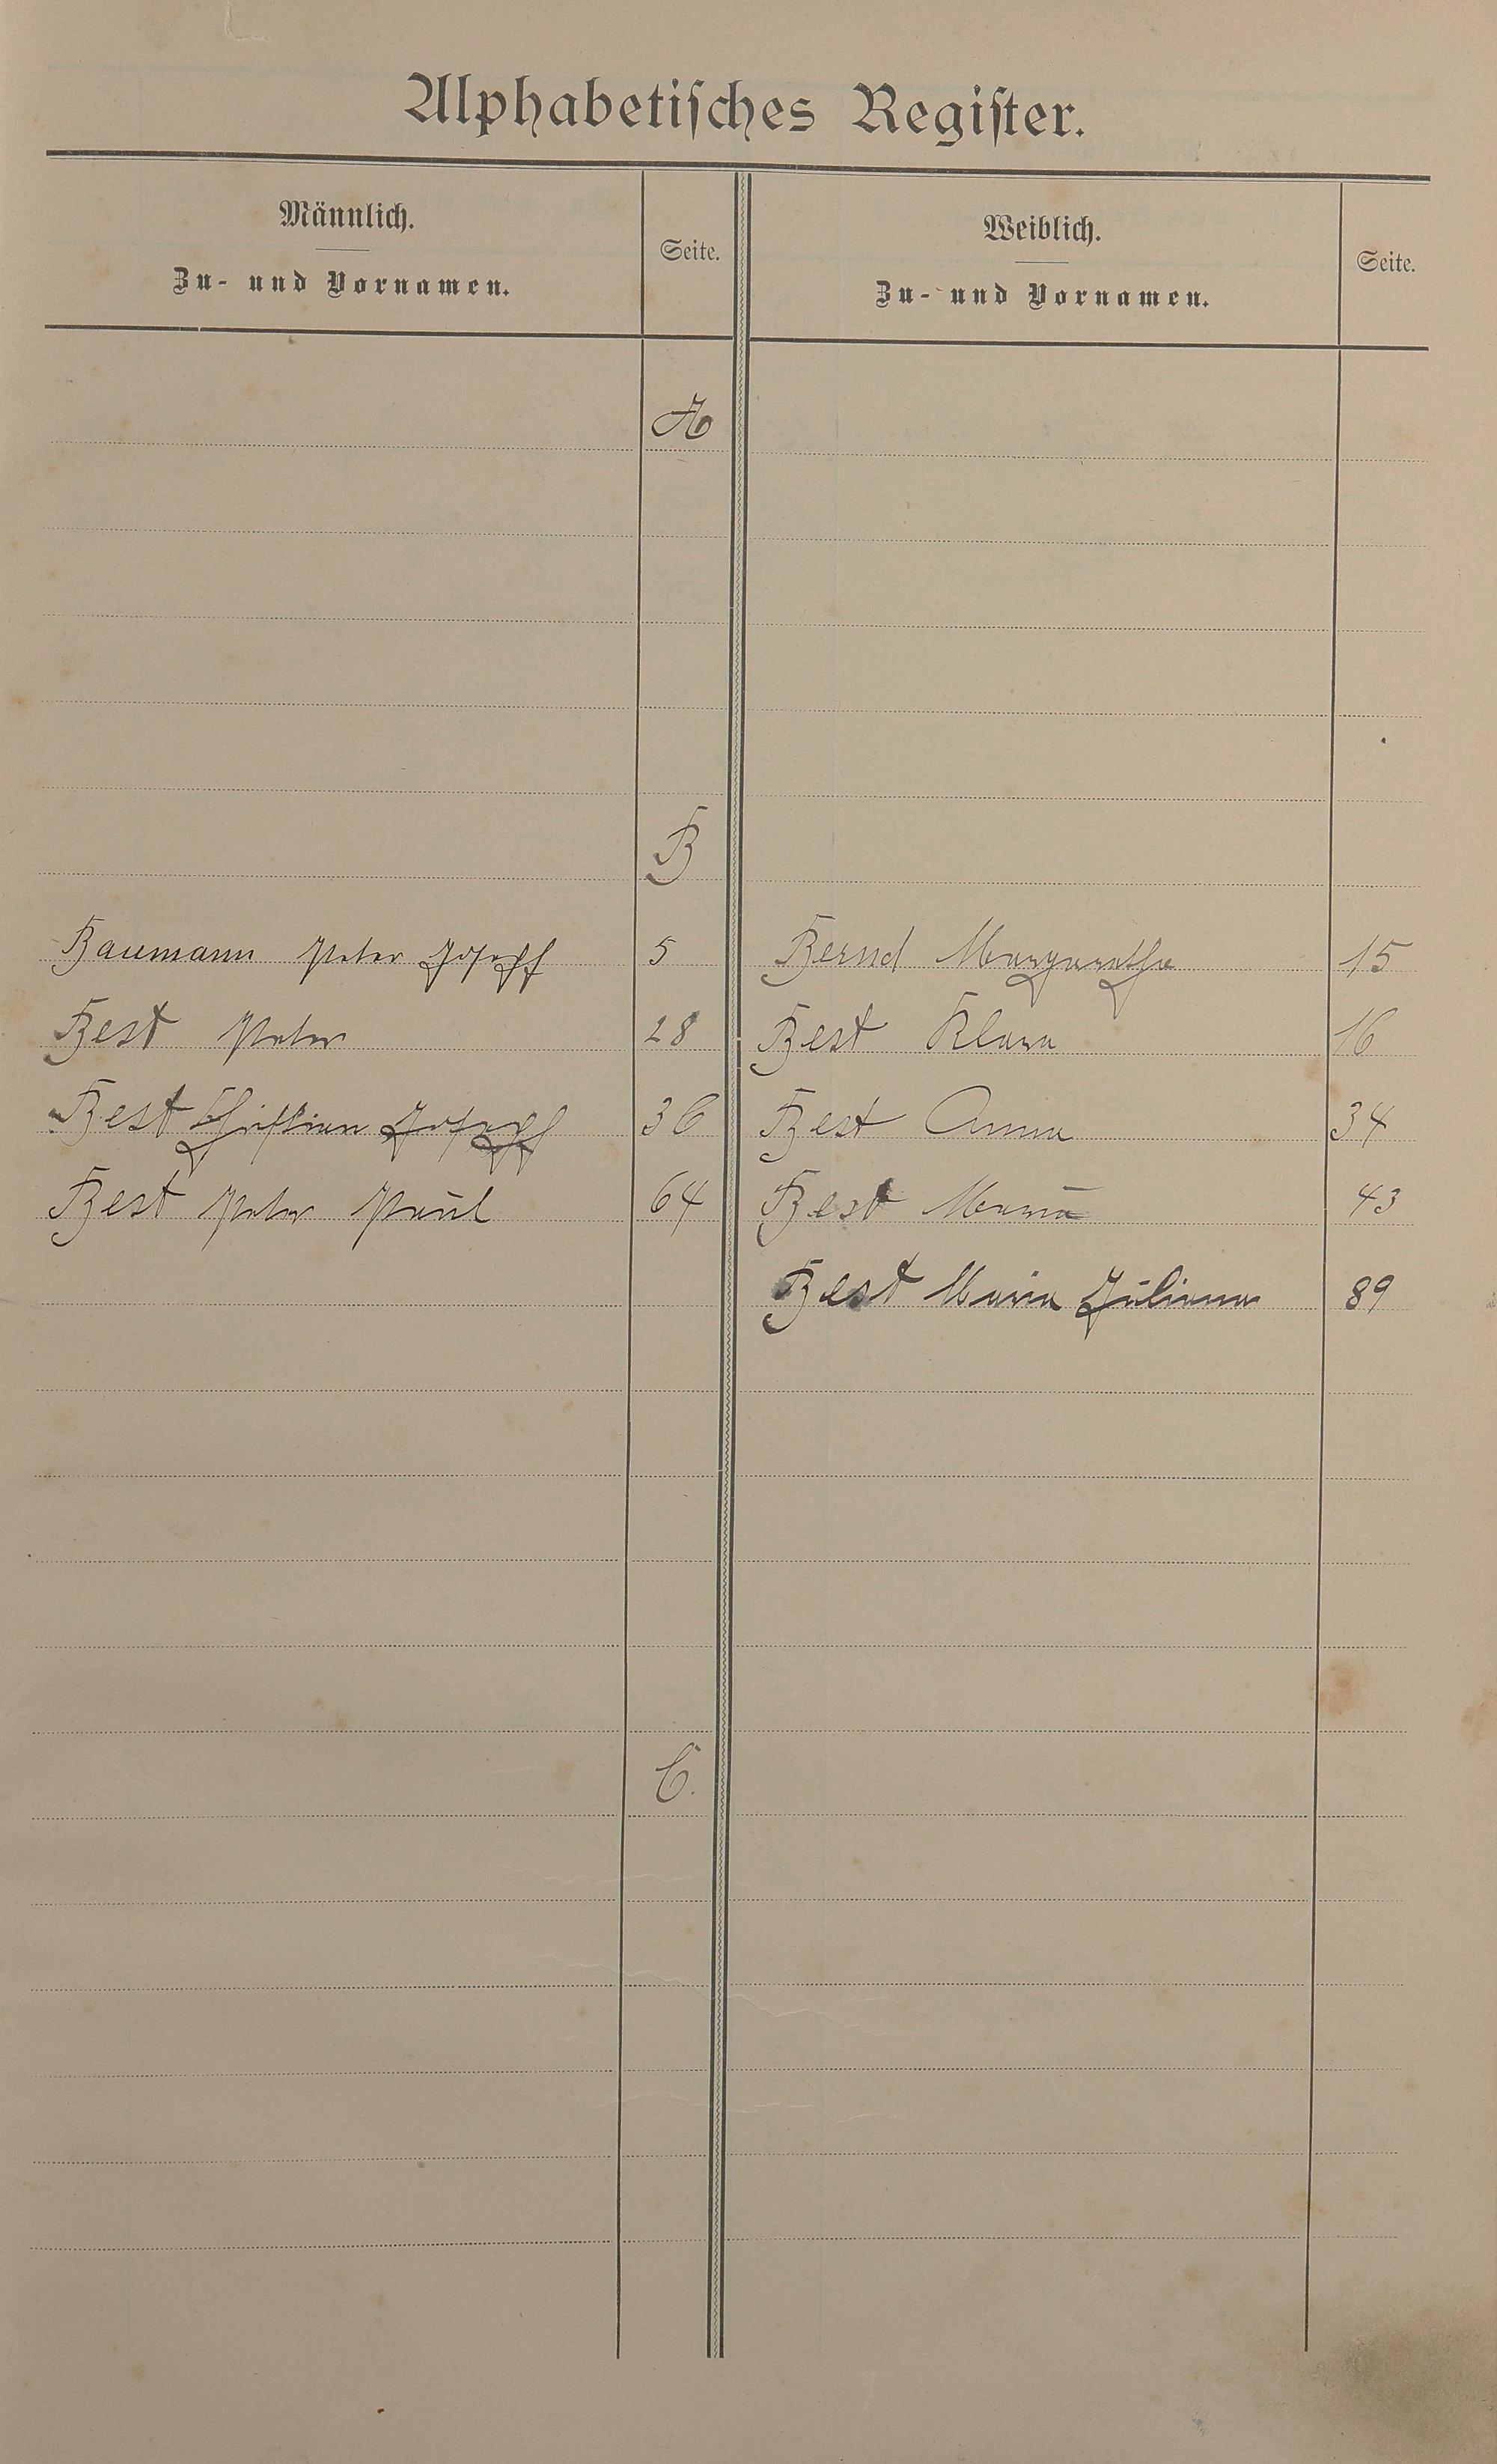 Alphabetisches Register.
Männlich. Weiblich.
Seite. Seite.
Zu- und Vornamen. Zu- und Vornamen.
A
B
Baumann Peter Joseph 5 Bernd Margarethe 15
Best Peter 28 Best Klara 16
Best Christian Joseph 36 Best Anna 34
Best Peter Paul 64 Best Maria 43
Best Maria Juliana 89
C.